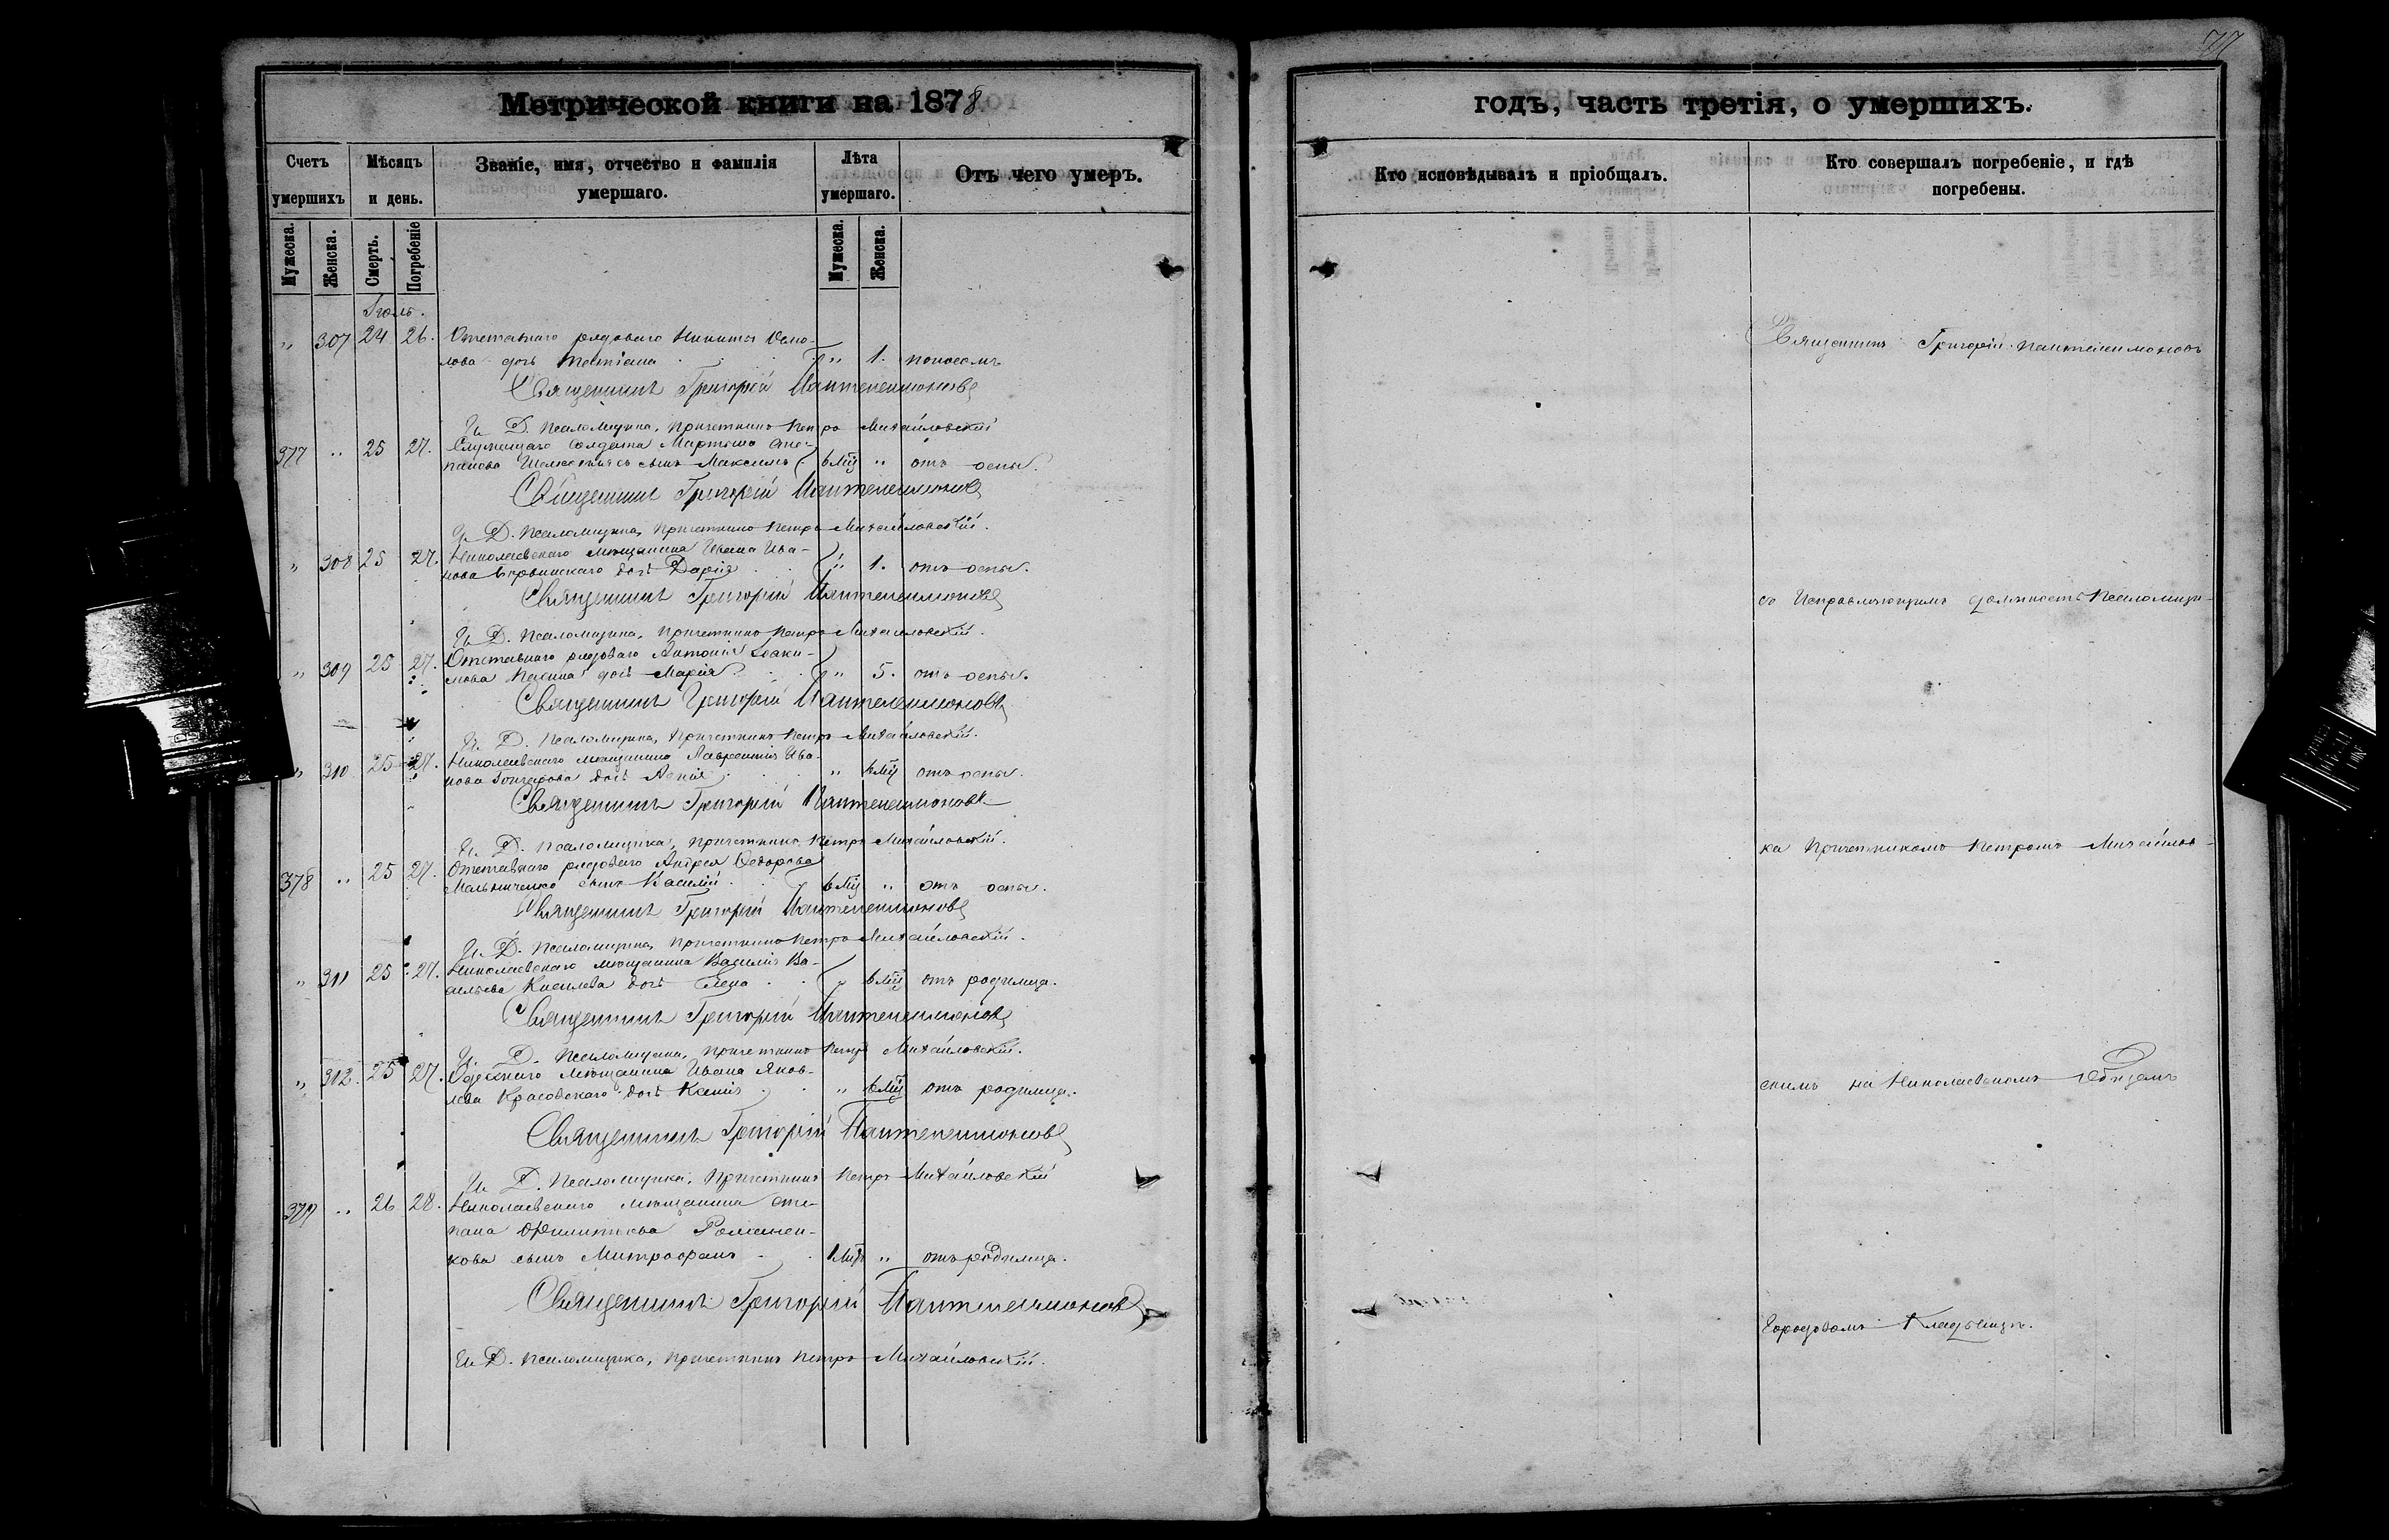 77
Метрической книги на 1878
годъ, часть третія, о умершихъ.
Счетъ умершихъ
Мѣсяцъ и день.
Званіе, имя, отчество и фамилія умершаго.
Лѣта умершаго.
Отъ чего умеръ.
Кто исповѣдывалъ и пріобщалъ.
Кто совершалъ погребеніе, и гдѣ погребены.
Мужеска.
Женска.
Смерть.
Погребеніе
Мужеска.
Женска.
Іюль.
" 307 24 26. Отставнаго рядоваго Никиты
лова дочь Татіана " 1. поносомъ
Священникъ Григорій Пантелеимоновъ
И. Д. Псаломщика, Причетникъ Петръ Михайловскій
377 " 25 27. Служащаго солдата Мартына Сте-
панова сынъ Максимъ " отъ оспы.
Священникъ Григорій Пантелеимоновъ
И. Д. Псаломщика, Причетникъ Петръ Михайловскій.
" 308 25 27. Николаевскаго мѣщанина Ивана Ива-
нова дочь Дарія " 1. отъ оспы.
Священникъ Григорій Пантелеимоновъ
И. Д. Псаломщика, Причетникъ Петръ Михайловскій.
" 309 25 27. Отставнаго рядоваго Антонія Іоаки-
мова дочь Марія " 5. отъ оспы.
Священникъ Григорій Пантелеимоновъ
И. Д. Псаломщика, Причетникъ Петръ Михайловскій.
" 310 25 27. Николаевскаго мѣщанина Лаврентія Ива-
нова Гончарова дочь " отъ оспы.
Священникъ Григорій Пантелеимоновъ
И. Д. Псаломщика, Причетникъ Петръ Михайловскій.
378 " 25 27. Отставнаго рядоваго Андрея Ѳедорова
Мальниченко сынъ Василій " отъ оспы.
Священникъ Григорій Пантелеимоновъ
И. Д. Псаломщика, Причетникъ Петръ Михайловскій.
" 311 25 27. Николаевскаго мѣщанина Василія Ва-
сильева Киселева дочь Елена отъ родимца.
Священникъ Григорій Пантелеимоновъ
И. Д. Псаломщика, Причетникъ Петръ Михайловскій.
" 312. 25 27. Одесскаго мѣщанина Ивана Яков-
лева Красовскаго дочь Ксенія " отъ родимца.
Священникъ Григорій Пантелеимоновъ
И. Д. Псаломщика, Причетникъ Петръ Михайловскій
379 " 26 28. Николаевскаго мѣщанина Сте-
пана Филиппова Романен-
кова сынъ Митрофанъ " отъ родимца.
Священникъ Григорій Пантелеимоновъ
И. Д. Псаломщика, Причетникъ Петръ Михайловскій.
Священникъ Григорій Пантелеимоновъ
съ Исправляющимъ должность Псаломщи-
ка Причетникомъ Петромъ Михайлов-
скимъ на Николаевскомъ Общемъ
Городовомъ Кладбищѣ.